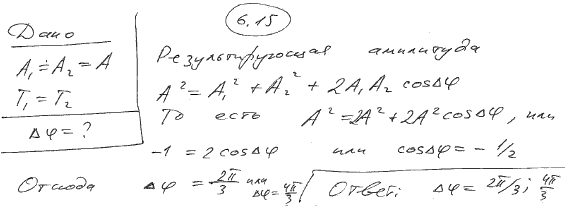 6.15
Дано
A₁ = A₂ = A
T₁ = T₂
Δφ = ?
Результирующая амплитуда
A² = A₁² + A₂² + 2A₁A₂ cosΔφ
То есть A² = 2A² + 2A² cosΔφ, или
-1 = 2 cosΔφ или cosΔφ = - 1/2
Отсюда Δφ = 2π/3 или Δφ = 4π/3
Ответ: Δφ = 2π/3; 4π/3